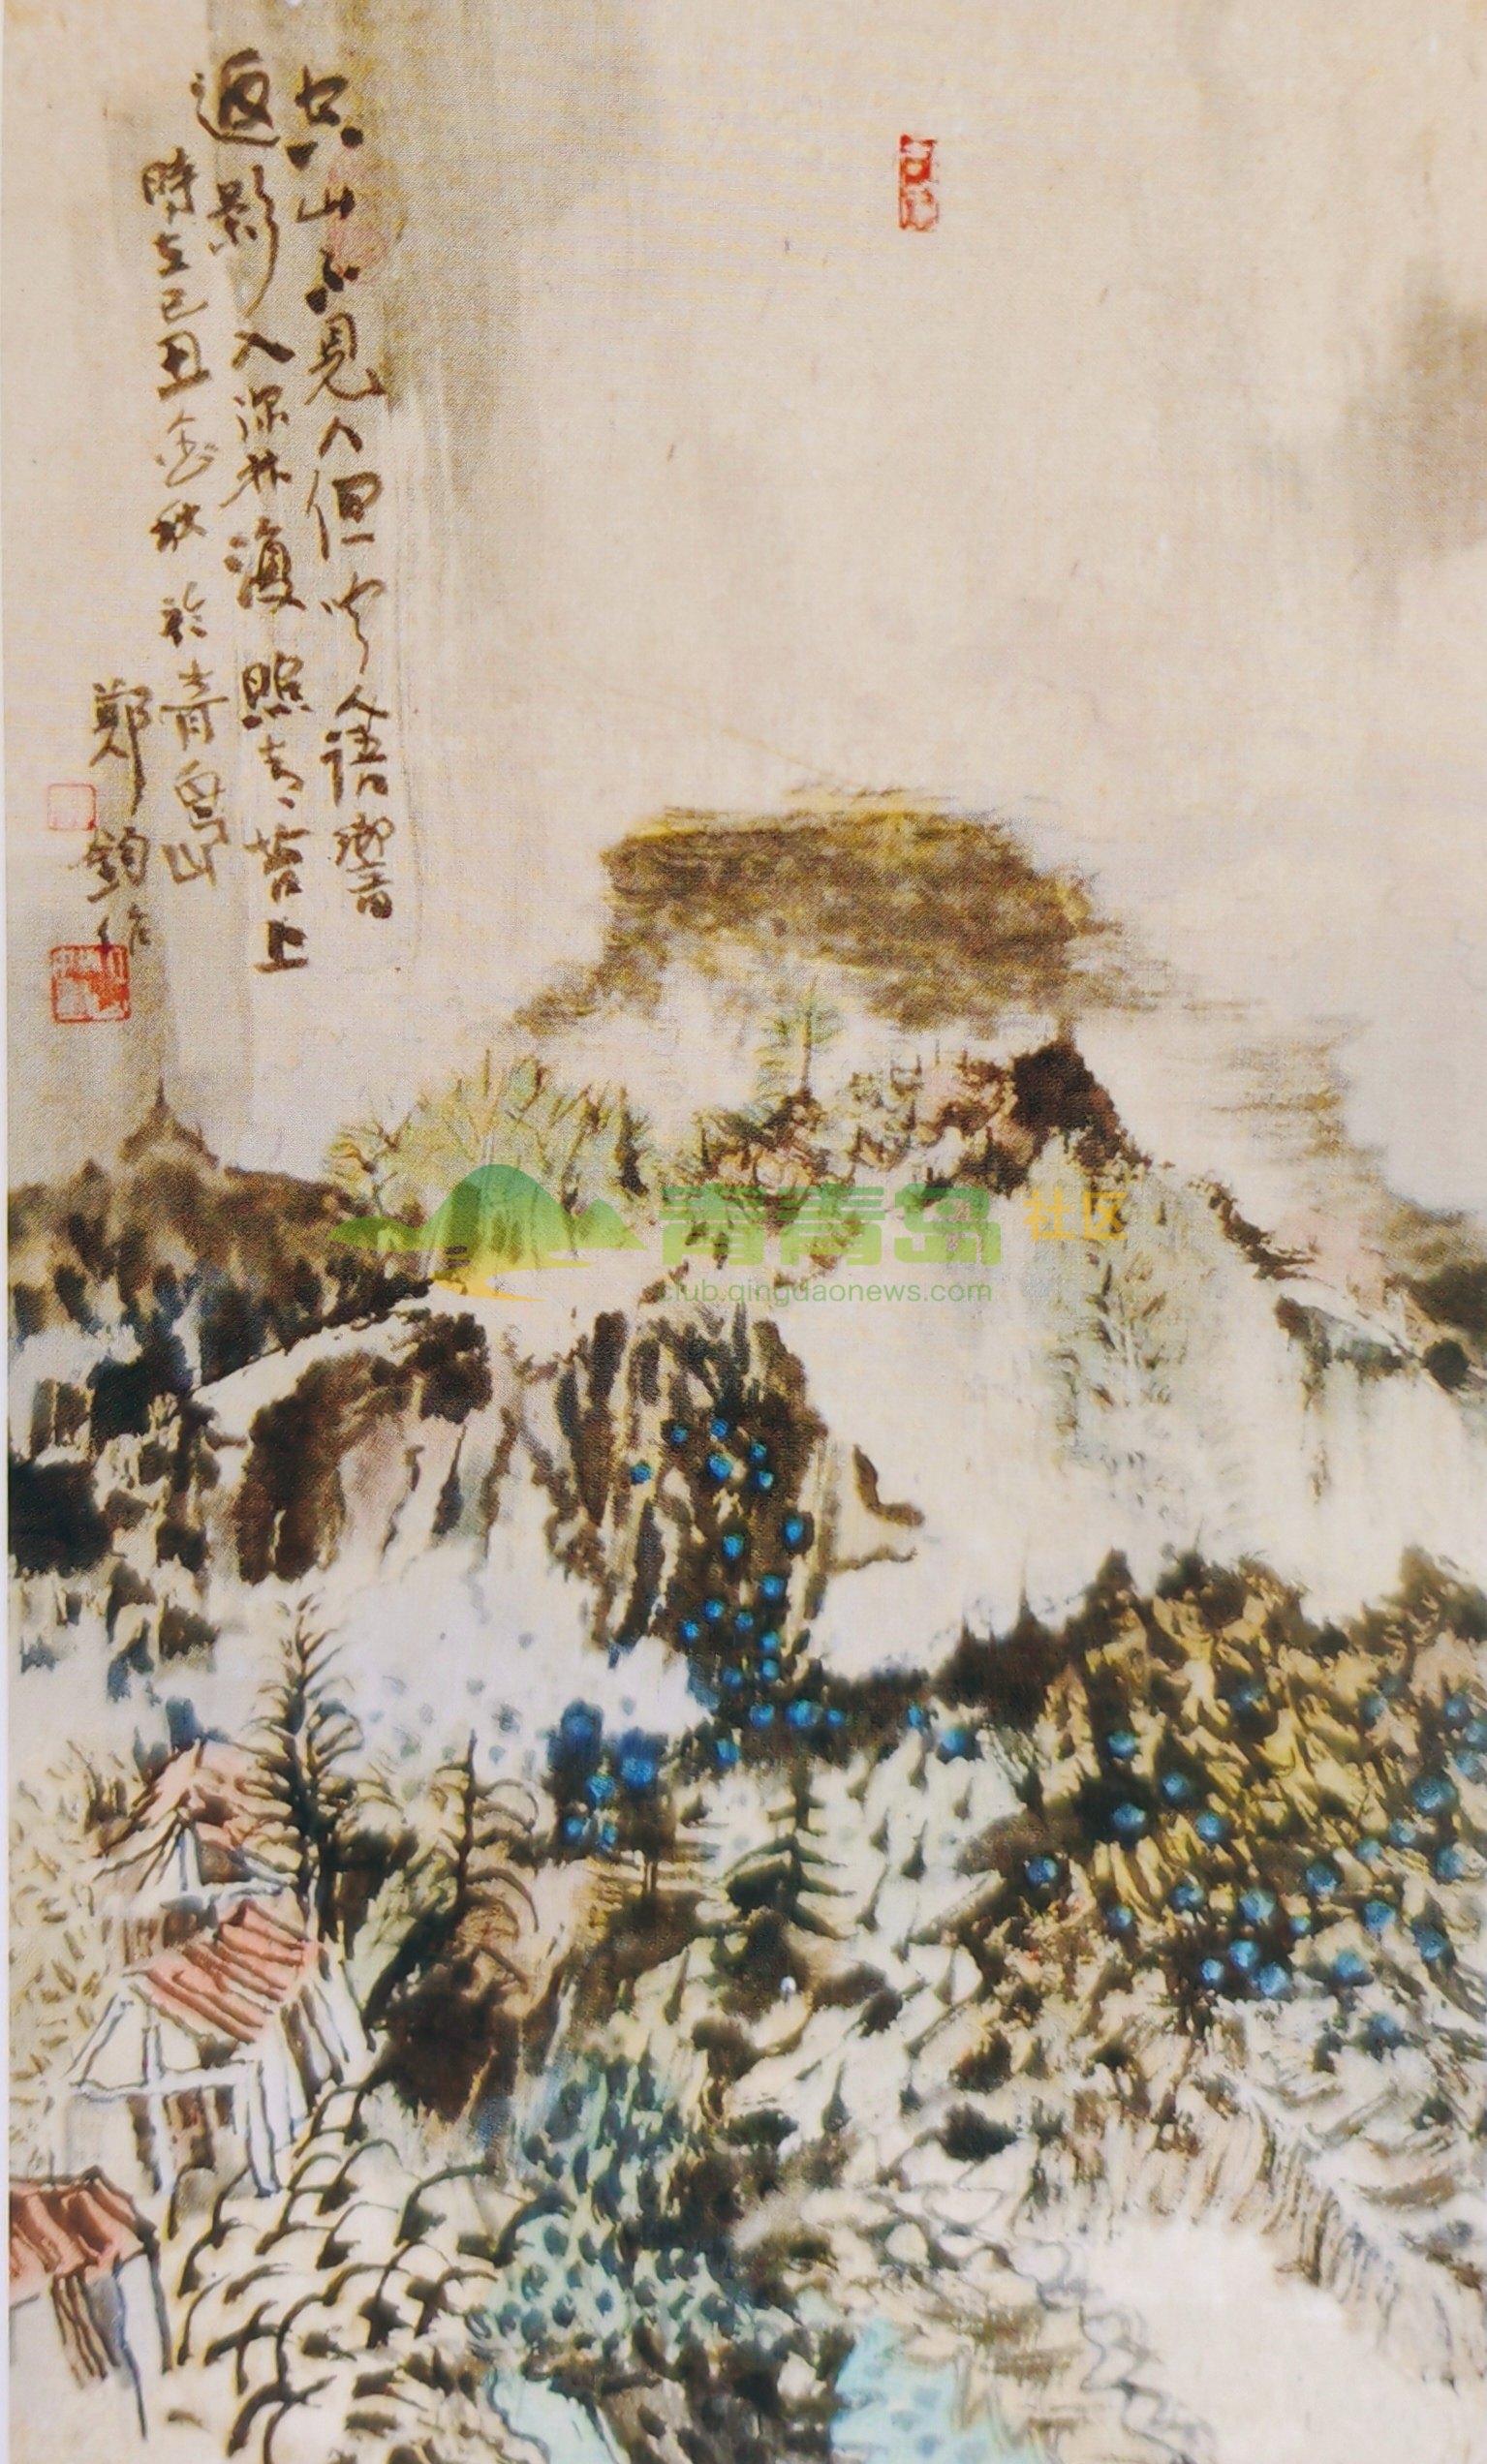 空山不見人但聞人語響
返影入深林復照青苔上
時在己丑金秋於青島山
鄭鈞作
青青岛 社区
club.qingdaonews.com